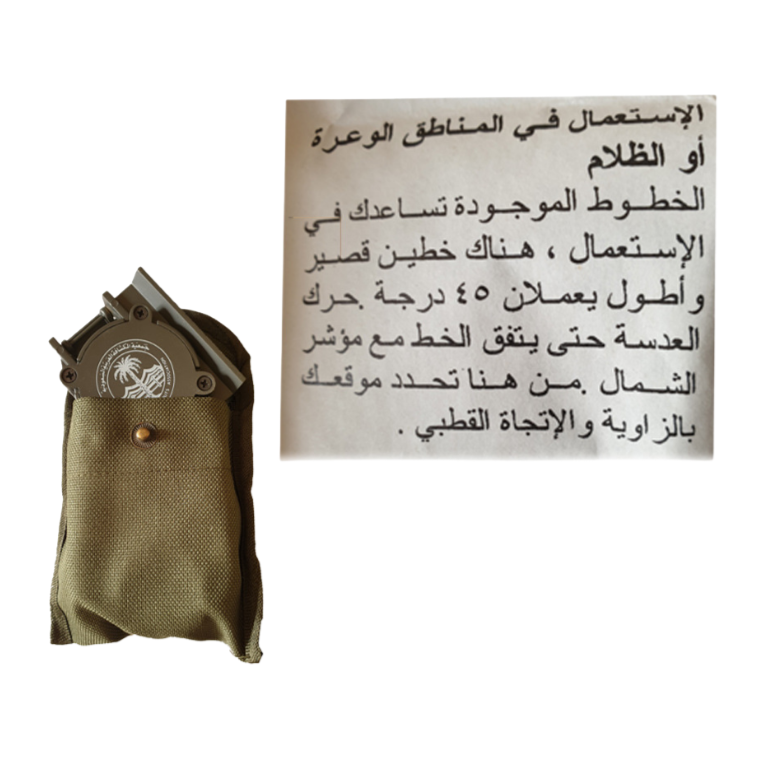 الإستعمال في المناطق الوعرة
أو الظلام
الخطوط الموجودة تساعدك في
الإستعمال ، هناك خطين قصير
و أطول يعملان ٤٥ درجة .حرك
العدسة حتى يتفق الخط مع مؤشر
الشمال .من هنا تحدد موقعك
بالزاوية و الإتجاة القطبي .